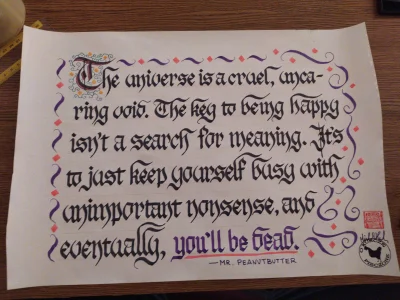 The universe is a cruel, unca-
ring void. The key to being happy
isn't a search for meaning. It's
to just keep yourself busy with
unimportant nonsense, and
eventually, you'll be dead.
—MR. PEANUTBUTTER